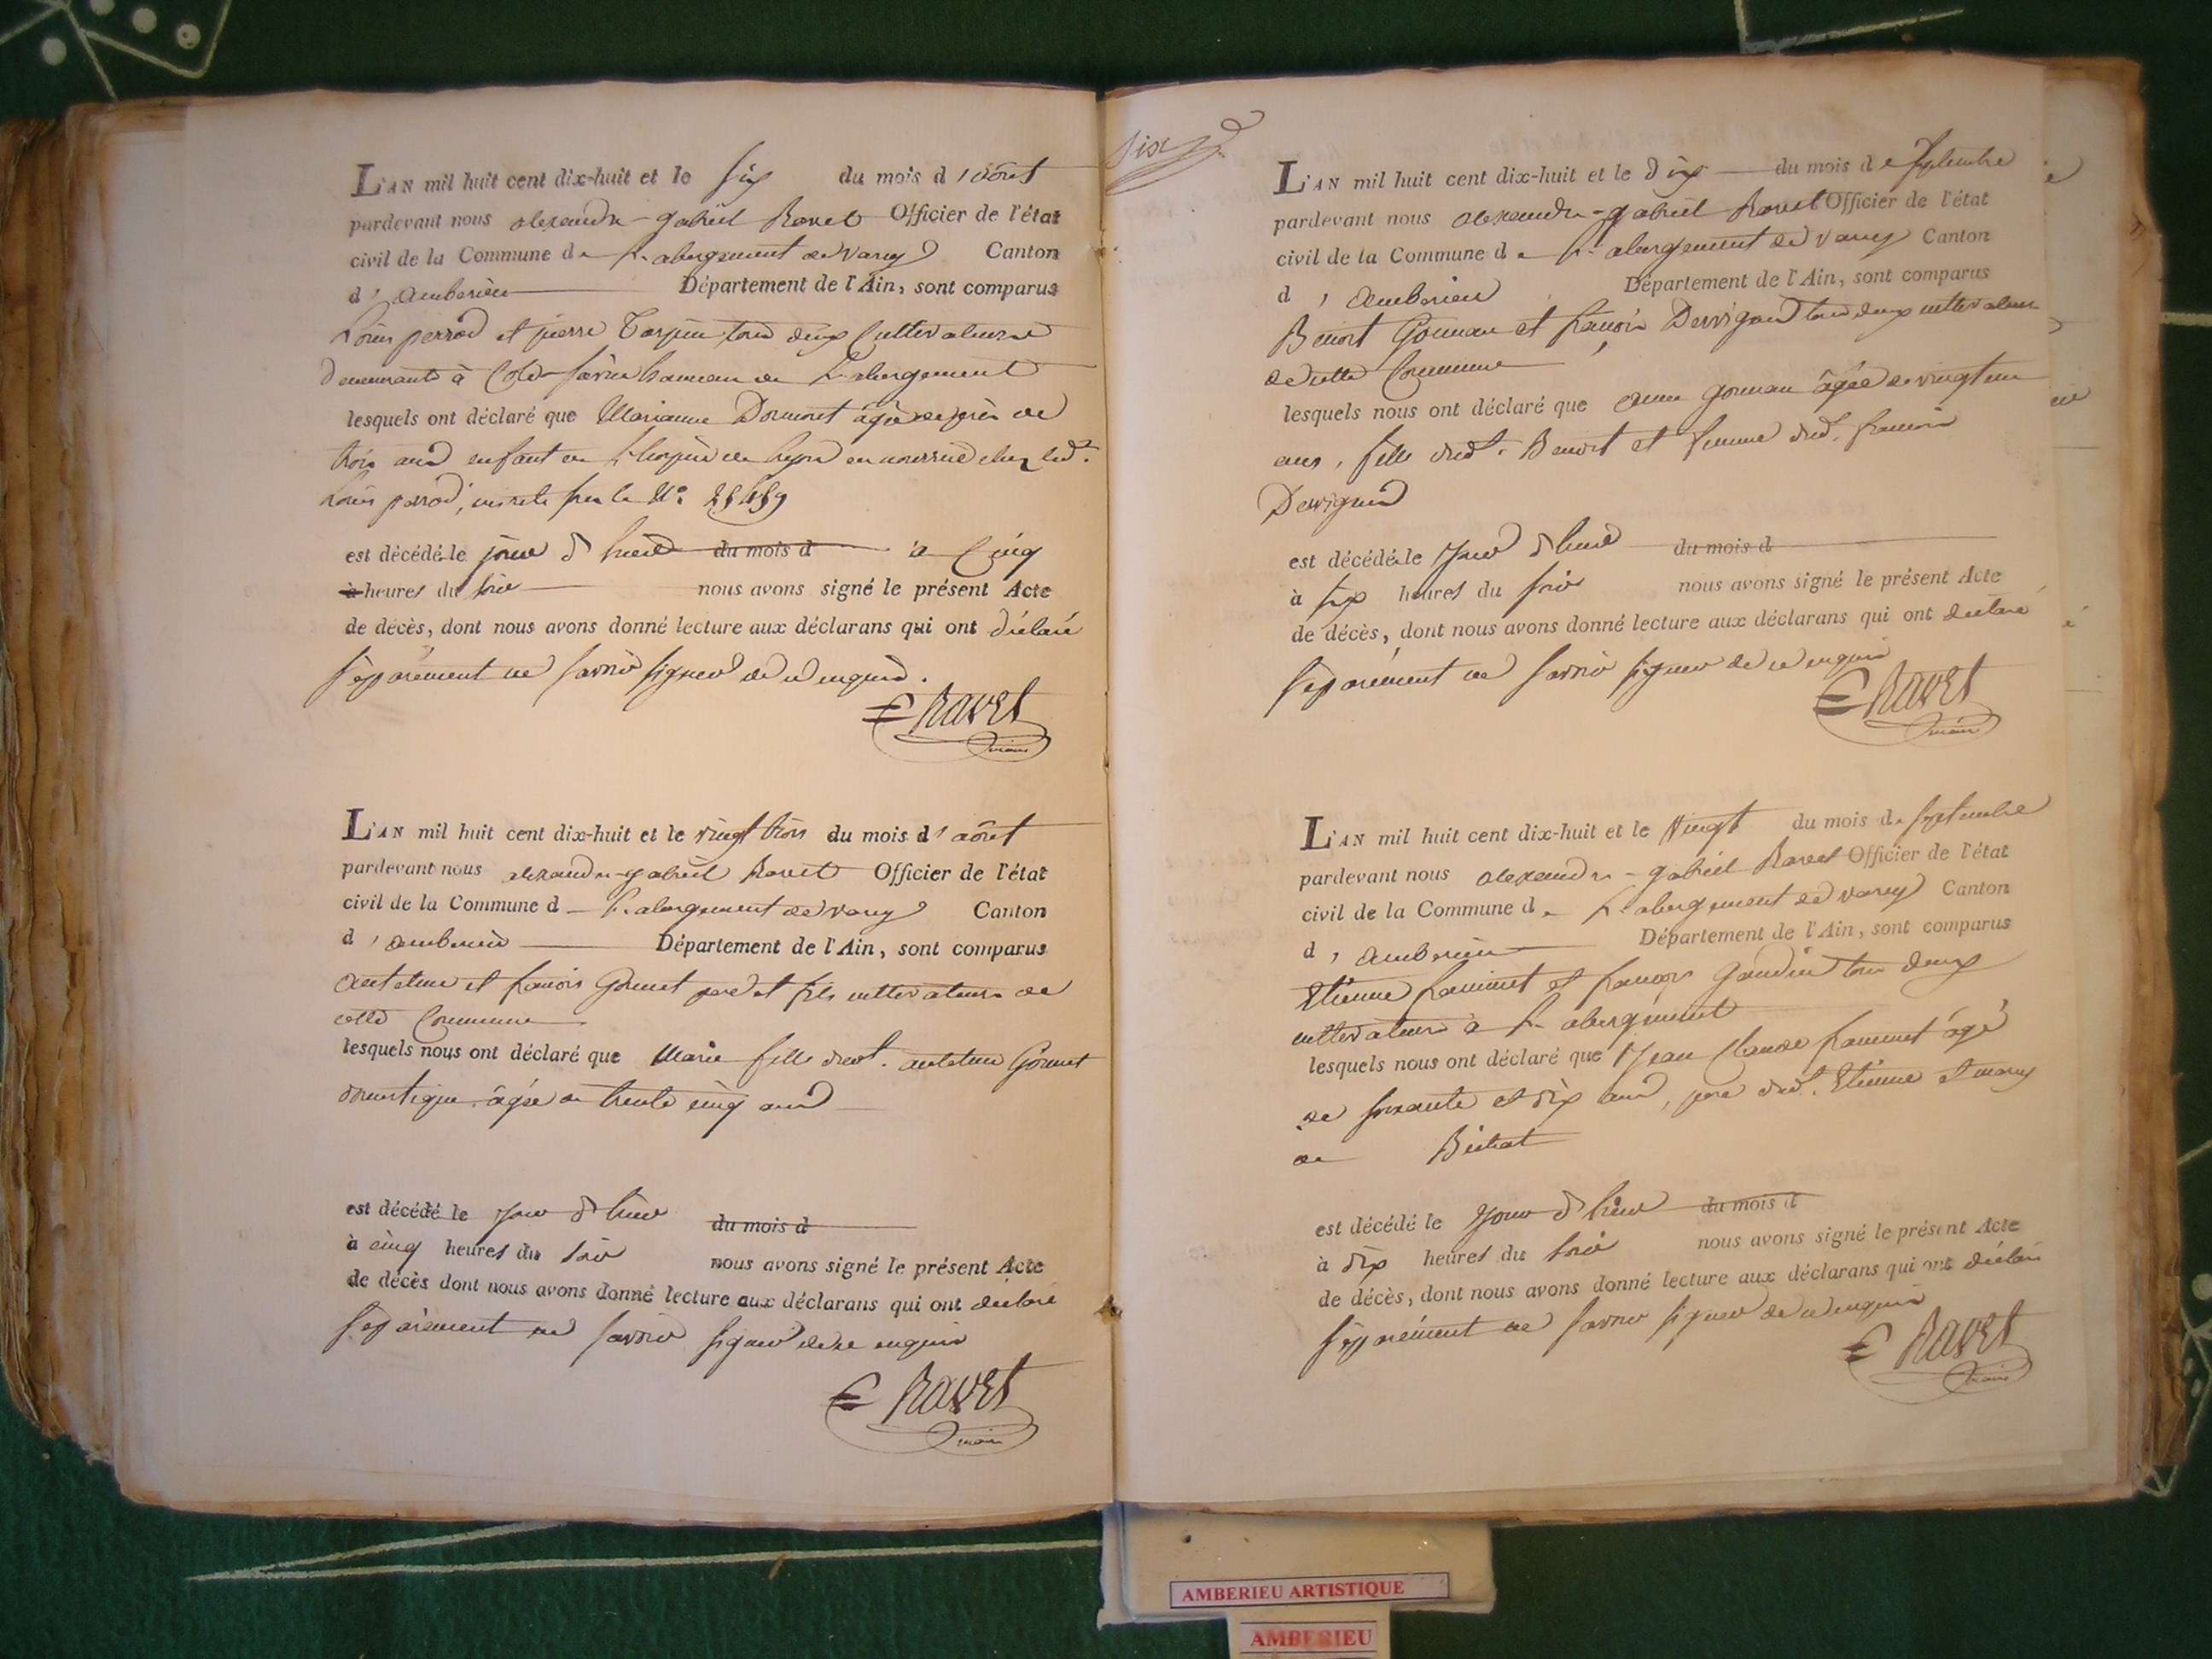 L'AN mil huit cent dix-huit et le six du mois d'août
pardevant nous alexandre-gabriel Ravet Officier de l'état
civil de la Commune de L'abergement de varey Canton
d'amberieu Département de l'Ain, sont comparus
Louis perrod et pierre tous deux Cultivateurs
demeurants à hameau de L'abergement
lesquels ont déclaré que Marianne Dormont âgée de près de
trois ans enfant de L'hospice de Lyon en nourrice chez led.
Louis perrod, sous le N.º
est décédé le jour d'hier du mois d à Cinq
à heures du soir nous avons signé le présent Acte
de décès, dont nous avons donné lecture aux déclarans qui ont déclaré
séparément ne savoir signer de ce enquis.
Ravet
maire
L'AN mil huit cent dix-huit et le vingt trois du mois d'août
pardevant nous alexandre-gabriel Ravet Officier de l'état
civil de la Commune de L'abergement de varey Canton
d'amberieu Département de l'Ain, sont comparus
antelme et françois Gonnet père et fils cultivateurs de
cette Commune
lesquels nous ont déclaré que Marie fille dud. antelme Gonnet
domestique âgée de trente cinq ans
est décédé le jour d'hier du mois d
à cinq heures du soir nous avons signé le présent Acte
de décès dont nous avons donné lecture aux déclarans qui ont déclaré
séparément ne savoir signer de ce enquis
Ravet
maire
six
L'AN mil huit cent dix-huit et le dix du mois de septembre
pardevant nous alexandre-gabriel Ravet Officier de l'état
civil de la Commune de L'abergement de varey Canton
d'amberieu Département de l'Ain, sont comparus
Benoit et françois tous deux cultivateurs
de cette Commune
lesquels nous ont déclaré que âgée de vingt un
ans, fille dud. Benoit et femme dud. françois
est décédé le jour d'hier du mois d
à heures du soir nous avons signé le présent Acte
de décès, dont nous avons donné lecture aux déclarans qui ont déclaré
séparément ne savoir signer de ce enquis
Ravet
maire
L'AN mil huit cent dix-huit et le vingt du mois de septembre
pardevant nous alexandre-gabriel Ravet Officier de l'état
civil de la Commune de L'abergement de varey Canton
d'amberieu Département de l'Ain, sont comparus
Etienne et françois Gaudin tous deux
cultivateurs à L'abergement
lesquels nous ont déclaré que Jean Claude âgé
de soixante et dix ans, père dud. Etienne et mary
de Bichat
est décédé le jour d'hier du mois d
à dix heures du soir nous avons signé le présent Acte
de décès, dont nous avons donné lecture aux déclarans qui ont déclaré
séparément ne savoir signer de ce enquis
Ravet
maire
AMBERIEU ARTISTIQUE
AMBERIEU